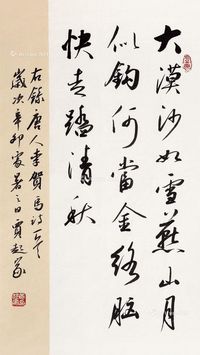 大漠沙如雪燕山月
似鈎何當金络腦
快走踏清秋
右錄唐人李賀馬诗一首
歲次辛卯處暑之日賈起家